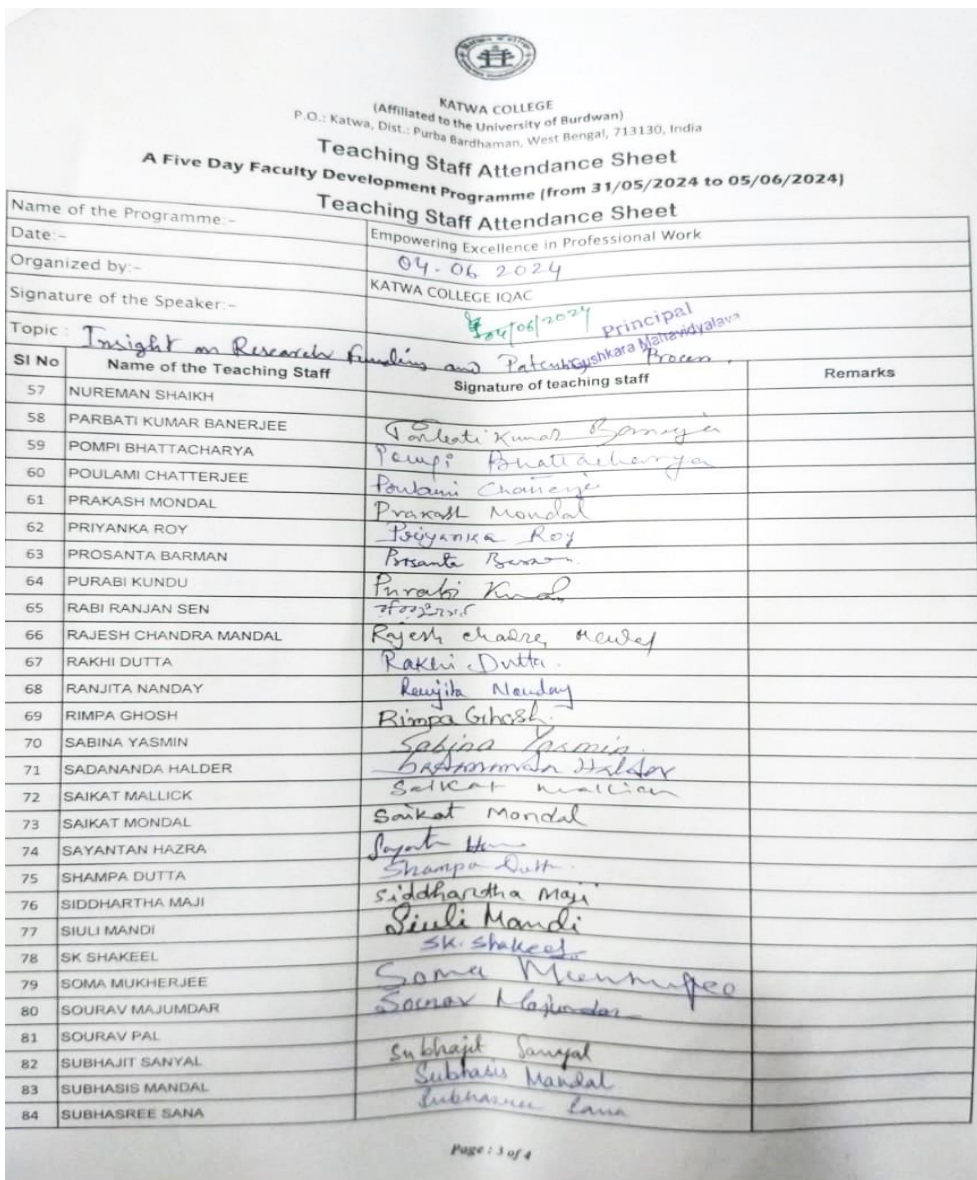 KATWA COLLEGE
(Affiliated to the University of Burdwan)
P.O.: Katwa, Dist.: Purba Bardhaman, West Bengal, 713130, India
Teaching Staff Attendance Sheet
A Five Day Faculty Development Programme (from 31/05/2024 to 05/06/2024)
Teaching Staff Attendance Sheet
Name of the Programme:- Empowering Excellence in Professional Work
Date:- 04-06 2024
Organized by:- KATWA COLLEGE IQAC
Signature of the Speaker:- 04/06/2024 Principal
Gushkara Mahavidyalaya
Topic : Insight on Research Funding and Patenting Process.
Sl No Name of the Teaching Staff Signature of teaching staff Remarks
57 NUREMAN SHAIKH
58 PARBATI KUMAR BANERJEE Parbati Kumar Banerjee
59 POMPI BHATTACHARYA Pompi Bhattacharya
60 POULAMI CHATTERJEE Poulami Chatterjee
61 PRAKASH MONDAL Prakash Mondal
62 PRIYANKA ROY Priyanka Roy
63 PROSANTA BARMAN Prosanta Barman
64 PURABI KUNDU Purabi Kundu
65 RABI RANJAN SEN
66 RAJESH CHANDRA MANDAL Rajesh Chandra Mandal
67 RAKHI DUTTA Rakhi Dutta.
68 RANJITA NANDAY Ranjita Nanday
69 RIMPA GHOSH Rimpa Ghosh.
70 SABINA YASMIN Sabina Yasmin.
71 SADANANDA HALDER Sadananda Halder
72 SAIKAT MALLICK Saikat Mallick
73 SAIKAT MONDAL Saikat Mondal
74 SAYANTAN HAZRA
75 SHAMPA DUTTA Shampa Dutta.
76 SIDDHARTHA MAJI Siddhartha Maji
77 SIULI MANDI Siuli Mandi
78 SK SHAKEEL SK. Shakeel
79 SOMA MUKHERJEE Soma Mukherjee
80 SOURAV MAJUMDAR Sourav Majumdar
81 SOURAV PAL
82 SUBHAJIT SANYAL Subhajit Sanyal
83 SUBHASIS MANDAL Subhasis Mandal
84 SUBHASREE SANA Subhasree Sana
Page : 3 of 4